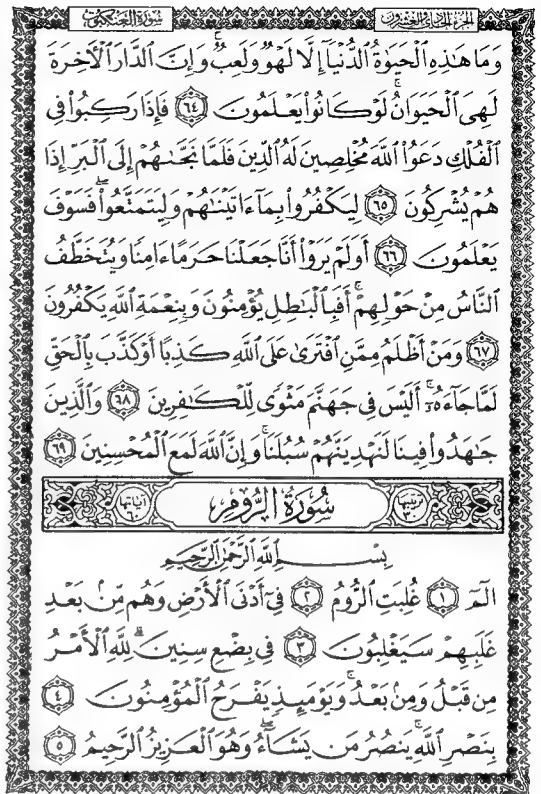 سورة العنكبوت
الجزء الحادي والعشرون
وَمَا هَٰذِهِ ٱلۡحَيَوٰةُ ٱلدُّنۡيَآ إِلَّا لَهۡوٞ وَلَعِبٞۚ وَإِنَّ ٱلدَّارَ ٱلۡأٓخِرَةَ
لَهِيَ ٱلۡحَيَوَانُۚ لَوۡ كَانُواْ يَعۡلَمُونَ ٦٤ فَإِذَا رَكِبُواْ فِي
ٱلۡفُلۡكِ دَعَوُاْ ٱللَّهَ مُخۡلِصِينَ لَهُ ٱلدِّينَ فَلَمَّا نَجَّىٰهُمۡ إِلَى ٱلۡبَرِّ إِذَا
هُمۡ يُشۡرِكُونَ ٦٥ لِيَكۡفُرُواْ بِمَآ ءَاتَيۡنَٰهُمۡ وَلِيَتَمَتَّعُواْۖ فَسَوۡفَ
يَعۡلَمُونَ ٦٦ أَوَلَمۡ يَرَوۡاْ أَنَّا جَعَلۡنَا حَرَمًا ءَامِنٗا وَيُتَخَطَّفُ
ٱلنَّاسُ مِنۡ حَوۡلِهِمۡۚ أَفَبِٱلۡبَٰطِلِ يُؤۡمِنُونَ وَبِنِعۡمَةِ ٱللَّهِ يَكۡفُرُونَ
٦٧ وَمَنۡ أَظۡلَمُ مِمَّنِ ٱفۡتَرَىٰ عَلَى ٱللَّهِ كَذِبًا أَوۡ كَذَّبَ بِٱلۡحَقِّ
لَمَّا جَآءَهُۥٓۚ أَلَيۡسَ فِي جَهَنَّمَ مَثۡوٗى لِّلۡكَٰفِرِينَ ٦٨ وَٱلَّذِينَ
جَٰهَدُواْ فِينَا لَنَهۡدِيَنَّهُمۡ سُبُلَنَاۚ وَإِنَّ ٱللَّهَ لَمَعَ ٱلۡمُحۡسِنِينَ ٦٩
ترتيبها ٣٠ سُورَةُ الرُّومِ آياتها ٦٠
بِسۡمِ ٱللَّهِ ٱلرَّحۡمَٰنِ ٱلرَّحِيمِ
الٓمٓ ١ غُلِبَتِ ٱلرُّومُ ٢ فِيٓ أَدۡنَى ٱلۡأَرۡضِ وَهُم مِّنۢ بَعۡدِ
غَلَبِهِمۡ سَيَغۡلِبُونَ ٣ فِي بِضۡعِ سِنِينَۗ لِلَّهِ ٱلۡأَمۡرُ
مِن قَبۡلُ وَمِنۢ بَعۡدُۚ وَيَوۡمَئِذٖ يَفۡرَحُ ٱلۡمُؤۡمِنُونَ ٤
بِنَصۡرِ ٱللَّهِۚ يَنصُرُ مَن يَشَآءُۖ وَهُوَ ٱلۡعَزِيزُ ٱلرَّحِيمُ ٥